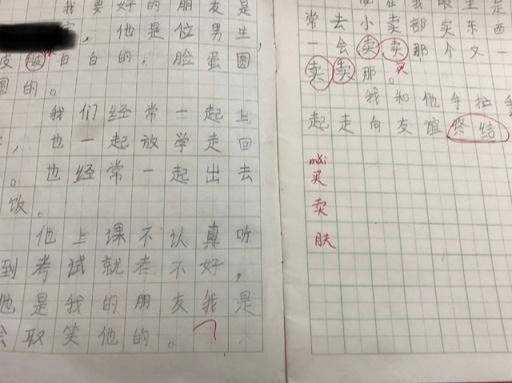 我要好的朋友是
他是位男生,
皮肤白白的,脸蛋圆
圆的。
我们经常一起上
,也一起放学走回
。也经常一起出去
饭。
他上课不认真听
到考试就考不好,
他是我的朋友我是
会取笑他的。
常去小卖部买东西
一会卖卖那个又一
卖卖那。买
我和他手拉手
起走向友谊终结
mǎi
买
卖
肤